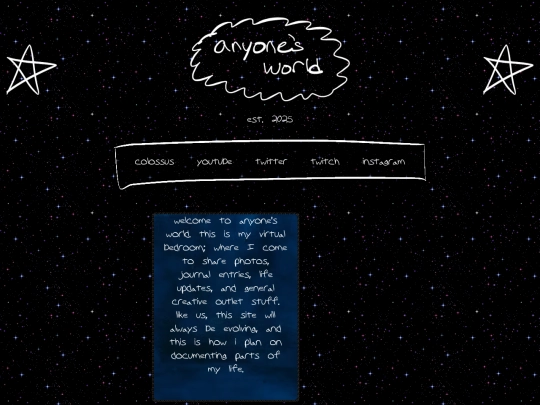 anyone's
world
est. 2025
colossus youtube twitter twitch instagram
welcome to anyone's
world. this is my virtual
bedroom; where I come
to share photos,
journal entries, life
updates, and general
creative outlet stuff.
like us, this site will
always be evolving, and
this is how i plan on
documenting parts of
my life.